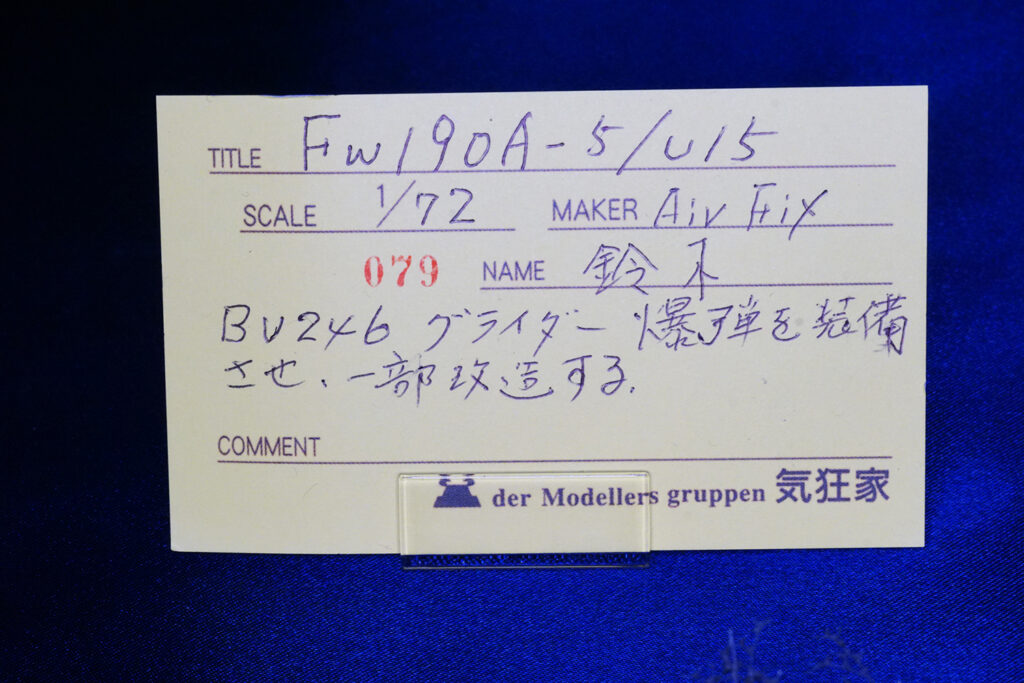 TITLE Fw190A-5/U15
SCALE 1/72 MAKER Air Fix
079 NAME 鈴木
BV246 グライダー爆弾を装備
させ、一部改造する.
COMMENT
der Modellers gruppen 気狂家